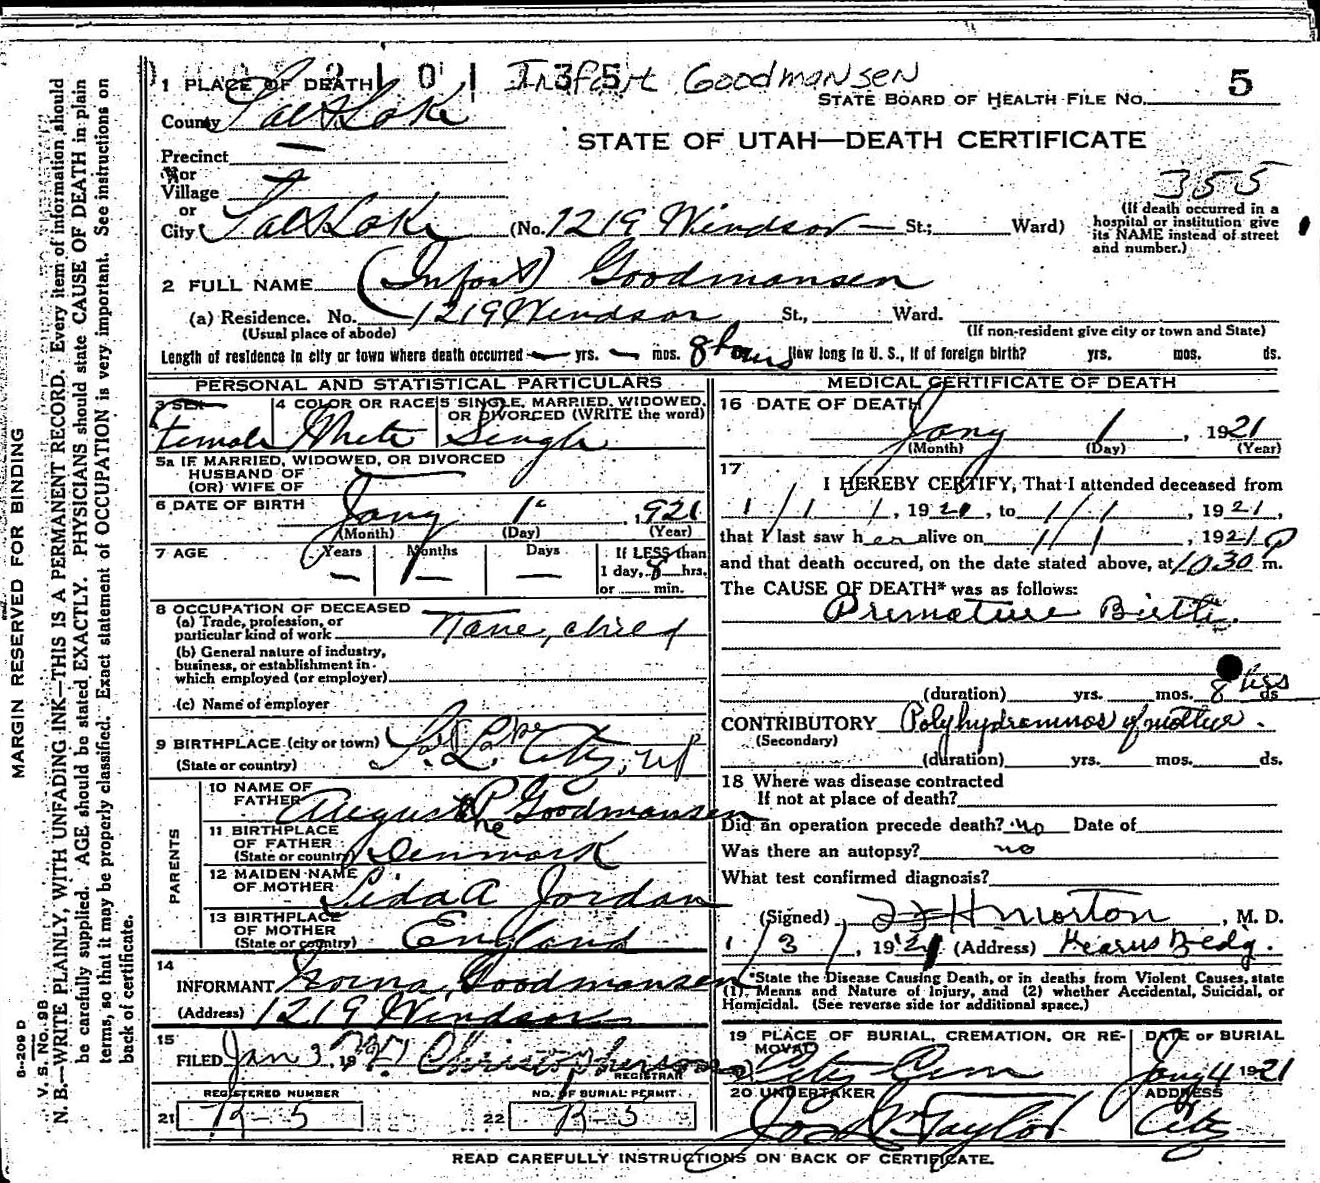 Infant Goodmansen
1 PLACE OF DEATH
STATE BOARD OF HEALTH FILE NO. 5
County Salt Lake
STATE OF UTAH—DEATH CERTIFICATE
Precinct
or
Village
355
or
City Salt Lake (No. 1219 Windsor — St.; Ward)
(If death occurred in a
hospital or institution give
its NAME instead of street
and number.)
2 FULL NAME (Infant) Goodmansen
(a) Residence. No. 1219 Windsor St., Ward.
(Usual place of abode) (If non-resident give city or town and State)
Length of residence in city or town where death occurred — yrs. — mos. 8 hours How long in U. S., if of foreign birth? yrs. mos. ds.
PERSONAL AND STATISTICAL PARTICULARS
3 SEX 4 COLOR OR RACE 5 SINGLE, MARRIED, WIDOWED,
OR DIVORCED (WRITE the word)
Female White Single
5a IF MARRIED, WIDOWED, OR DIVORCED
HUSBAND OF
(OR) WIFE OF
6 DATE OF BIRTH Jany 1 1921
(Month) (Day) (Year)
7 AGE Years Months Days If LESS than
— — — 1 day, 8 hrs.
or min.
8 OCCUPATION OF DECEASED
(a) Trade, profession, or
particular kind of work None, child
(b) General nature of industry,
business, or establishment in
which employed (or employer)
(c) Name of employer
9 BIRTHPLACE (city or town) S. L. City, Ut
(State or country)
PARENTS
10 NAME OF
FATHER August P. Goodmansen
11 BIRTHPLACE
OF FATHER
(State or country) Denmark
12 MAIDEN NAME
OF MOTHER Lida A Jordan
13 BIRTHPLACE
OF MOTHER
(State or country) England
14
INFORMANT Goodmansen
(Address) 1219 Windsor
15
FILED Jan 3. 1921 Christophersen
REGISTRAR
REGISTERED NUMBER NO. OF BURIAL PERMIT
21 R-5 22 R-5
MEDICAL CERTIFICATE OF DEATH
16 DATE OF DEATH
Jany 1, 1921
(Month) (Day) (Year)
17
I HEREBY CERTIFY, That I attended deceased from
1/1/, 1921, to 1/1, 1921,
that I last saw her alive on 1/1, 1921,
and that death occured, on the date stated above, at 10 30 P m.
The CAUSE OF DEATH* was as follows:
Premature Birth.
(duration) yrs. mos. 8 hrs ds
CONTRIBUTORY Polyhydramnos of mother.
(Secondary)
(duration) yrs. mos. ds.
18 Where was disease contracted
If not at place of death?
Did an operation precede death? no Date of
Was there an autopsy? no
What test confirmed diagnosis?
(Signed) Morton, M. D.
1/3/, 1921 (Address) Kearns Bldg.
*State the Disease Causing Death, or in deaths from Violent Causes, state
(1) Means and Nature of Injury, and (2) whether Accidental, Suicidal, or
Homicidal. (See reverse side for additional space.)
19 PLACE OF BURIAL, CREMATION, OR RE-
MOVAL
DATE OF BURIAL
City Cem Jany 4 1921
20 UNDERTAKER ADDRESS
Jos Taylor City
READ CAREFULLY INSTRUCTIONS ON BACK OF CERTIFICATE.
MARGIN RESERVED FOR BINDING
V. S. No. 9B
N. B.—WRITE PLAINLY, WITH UNFADING INK—THIS IS A PERMANENT RECORD. Every item of information should
be carefully supplied. AGE should be stated EXACTLY. PHYSICIANS should state CAUSE OF DEATH in plain
terms, so that it may be properly classified. Exact statement of OCCUPATION is very important. See instructions on
back of certificate.